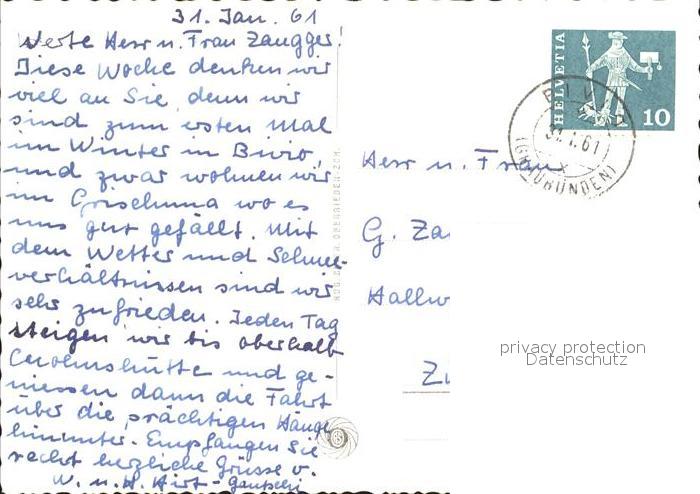 31. Jan. 61
Werte Herr u. Frau Zaugger!
Diese Woche denken wir
viel an Sie, denn wir
sind zum ersten Mal
im Winter in Bivio,
und zwar wohnen wir
im Grischuna wo es
uns gut gefällt. Mit
dem Wetter und Schnee-
verhältnissen sind wir
sehr zufrieden. Jeden Tag
steigen wir bis oberhalb
und ge-
niessen dann die Fahrt
über die prächtigen Hänge
hinunter. Empfangen Sie
recht herzliche Grüsse v.
W. u. H. Hirt-
HELVETIA
10
BIVIO
31.1.61
(GRAUBÜNDEN)
Herr u. Frau
G. Za
Hallw
Zü
privacy protection
Datenschutz